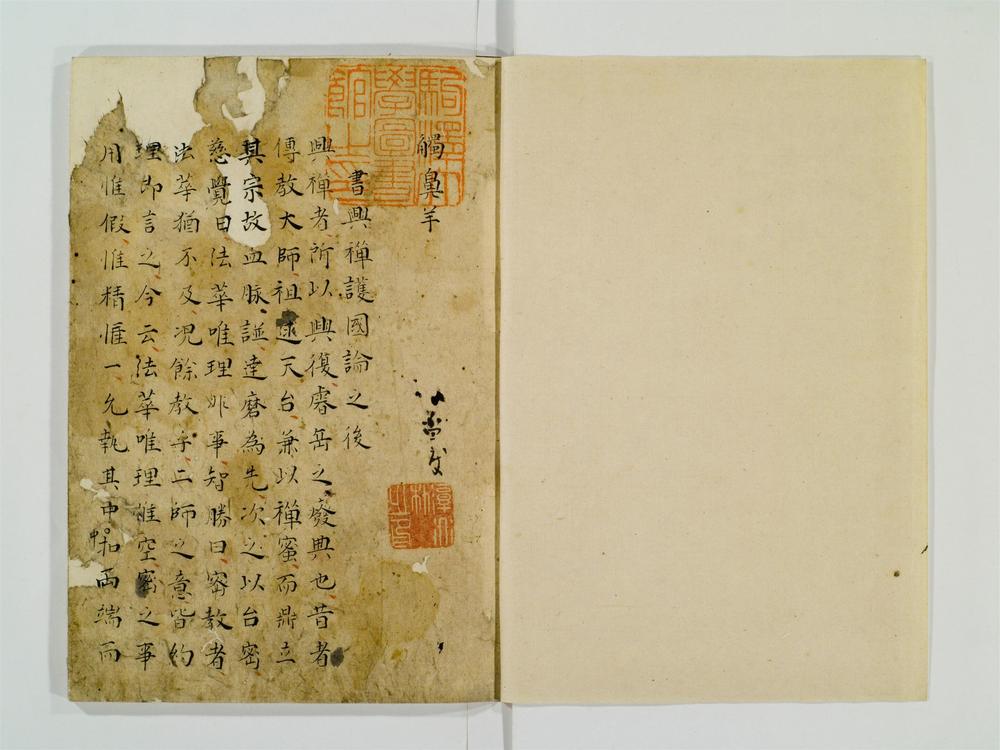 觸鼻羊
書興禅護國論之後
興禅者所以興復睿岳之廢典也昔者
傳教大師祖述天台兼以禅蜜而鼎立
其宗故血脉譜達磨為先次之以台密
慈覺曰法華唯理非事智勝曰密教者
法華猶不及况餘教乎二師之意皆約
理即言之今云法華唯理惟空密之事
用惟假惟精惟一允執其中和兩端而
中
駒澤大學圖書館之印